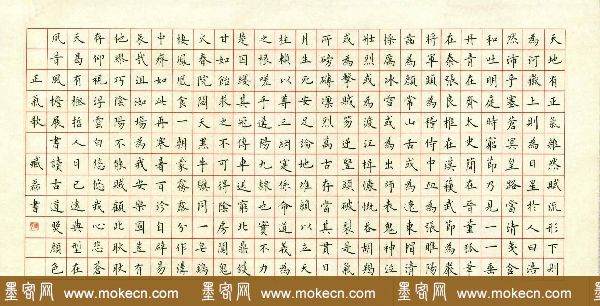 天地有正氣雜然賦流形下則
為河嶽上則為日星於人曰浩
然沛乎塞蒼冥皇路當清夷含
和吐明庭時窮節乃見一一垂
丹青在齊太史簡在晉董狐筆
在秦張良椎在漢蘇武節為嚴
將軍頭為嵇侍中血為張睢陽
齒為顏常山舌或為遼東帽清
操厲冰雪或為出師表鬼神泣
壯烈或為渡江楫慷慨吞胡羯
或為擊賊笏逆豎頭破裂是氣
所磅礴凜烈萬古存當其貫日
月生死安足論地維賴以立天
柱賴以尊三綱實係命道義為
之根嗟予遘陽九隸也實不力
楚囚纓其冠傳車送窮北鼎鑊
甘如飴求之不可得陰房闃鬼
火春院閟天黑牛驥同一皂雞
棲鳳凰食一朝蒙霧露分作溝
中瘠如此再寒暑百沴自辟易
哀哉沮洳場為我安樂國豈有
他繆巧陰陽不能賊顧此耿耿
存仰視浮雲白悠悠我心悲蒼
天曷有極哲人日已遠典型在
夙昔風簷展書讀古道照顏色
正氣歌 臧磊書
墨客网 墨客网 墨客网 墨客网
www.mokecn.com www.mokecn.com www.mokecn.com www.mokecn.com